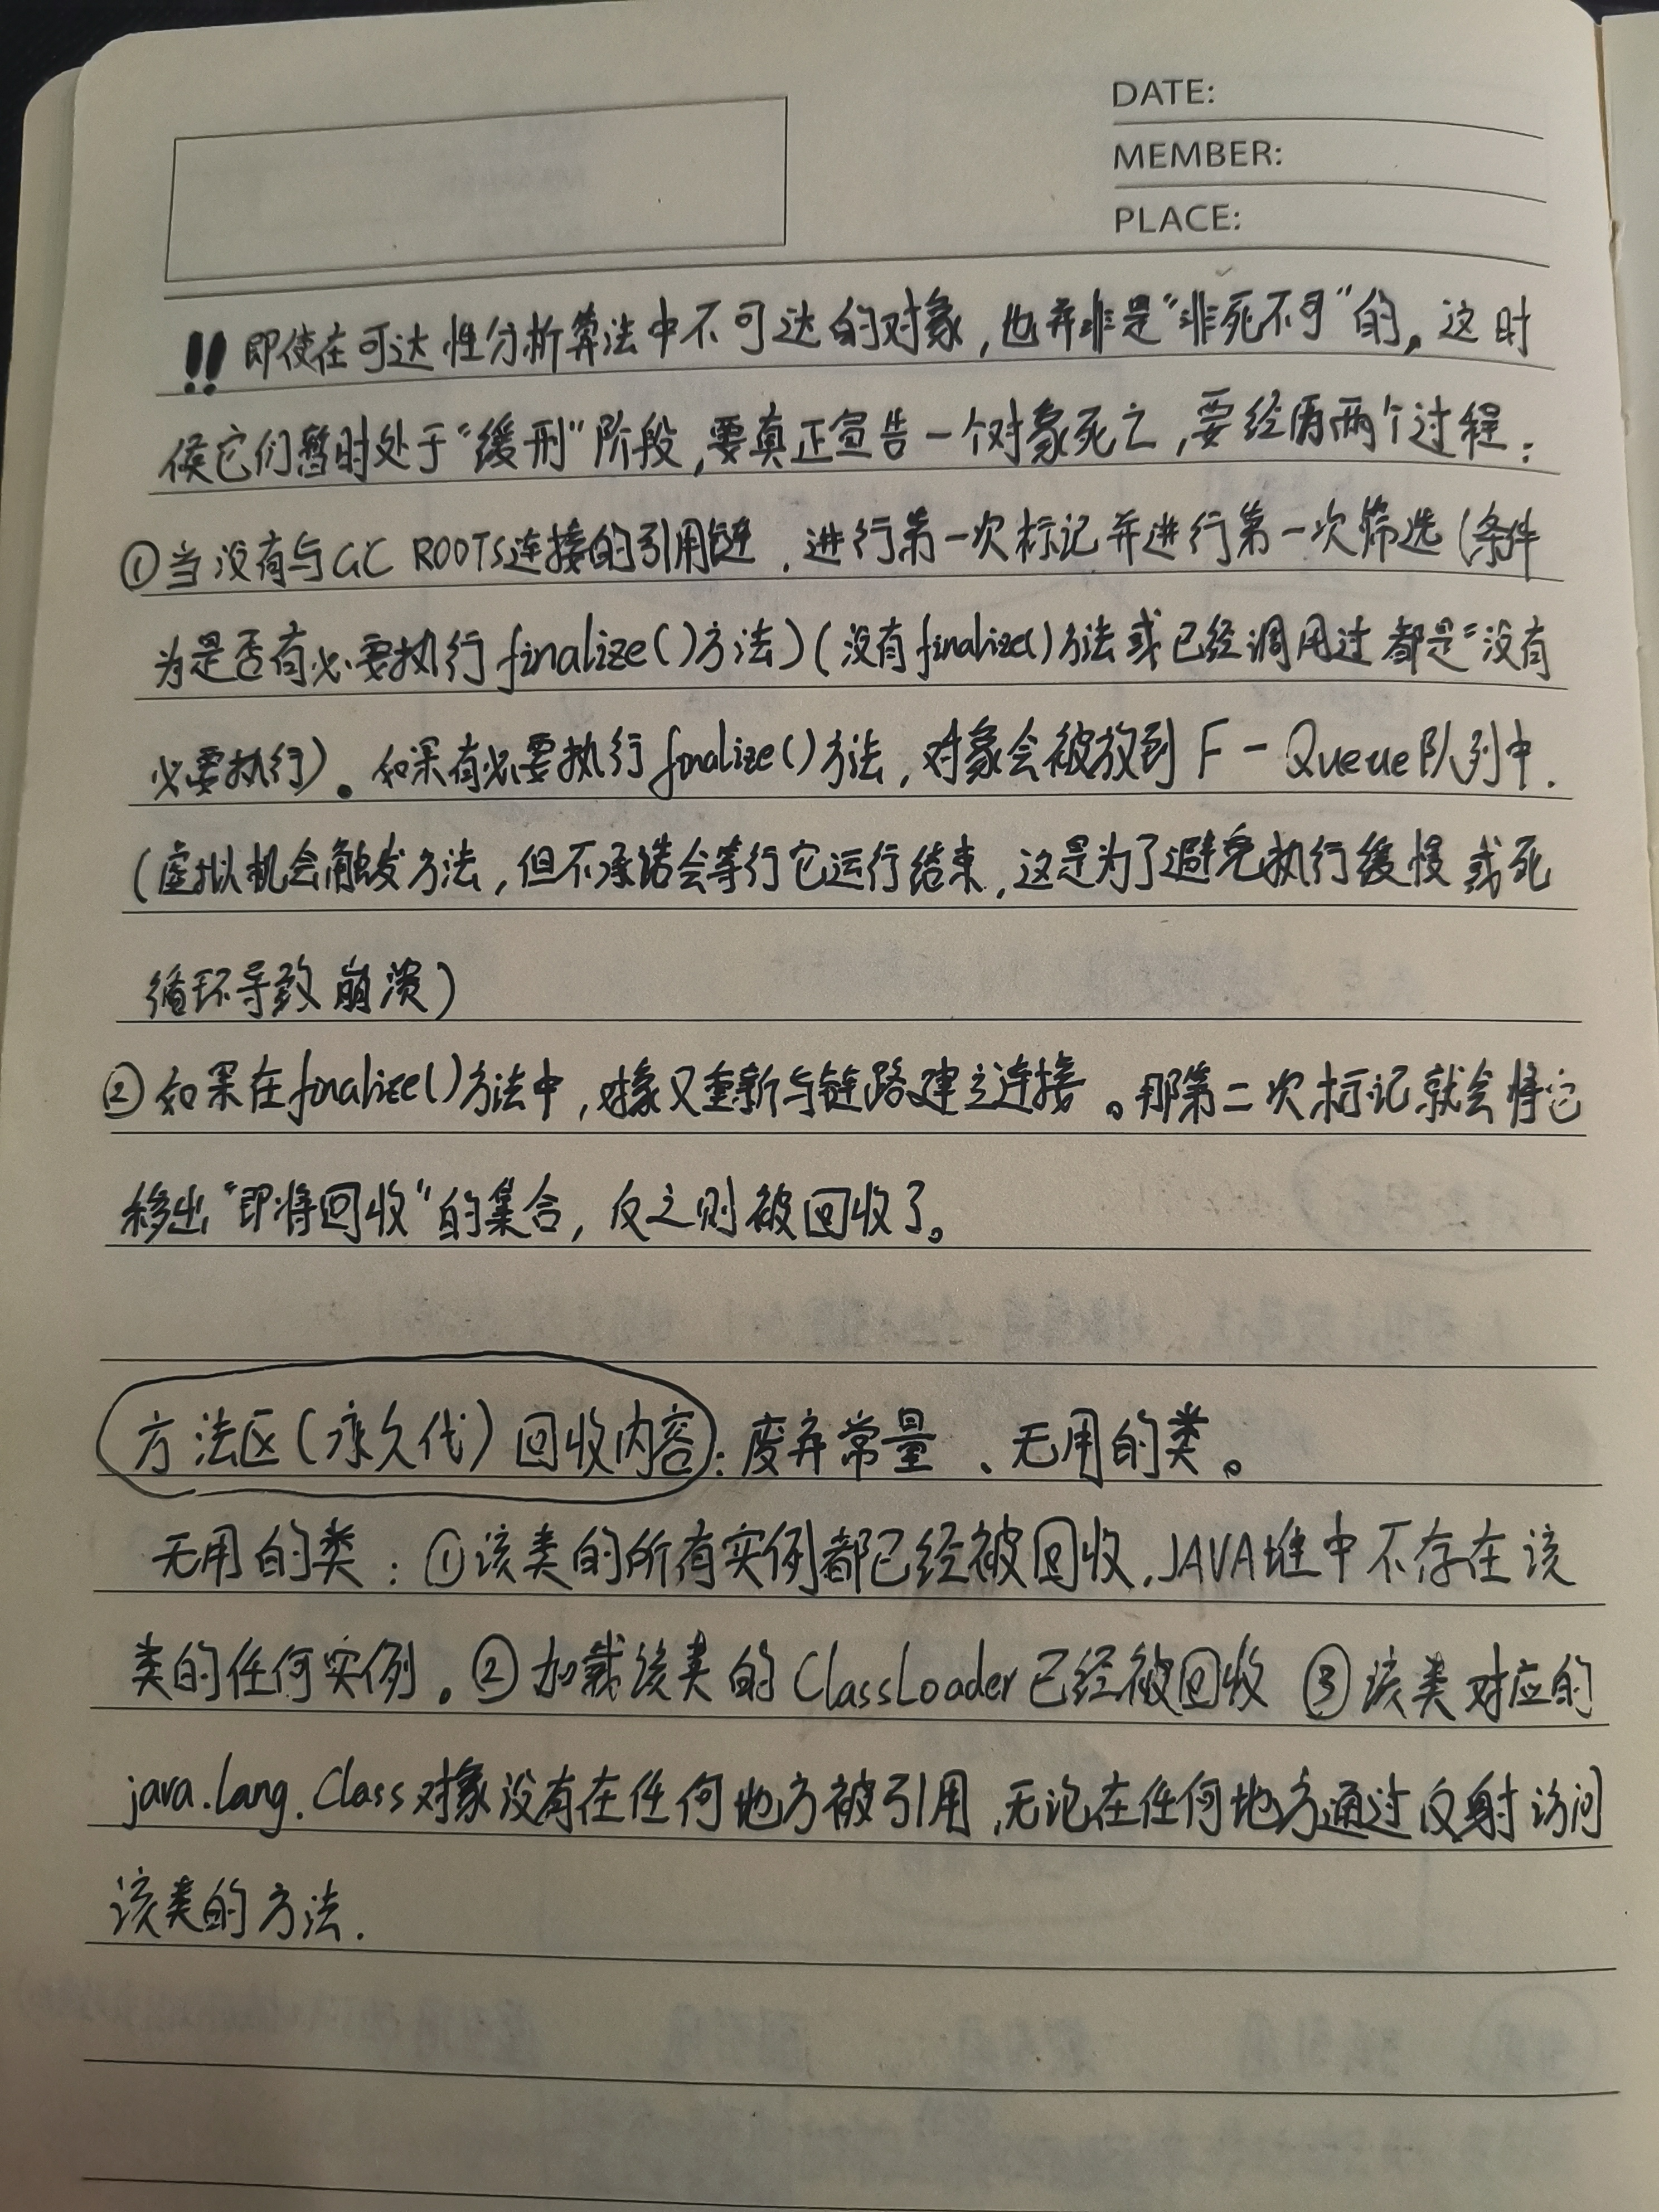 DATE:
MEMBER:
PLACE:
!! 即使在可达性分析算法中不可达的对象，也并非是“非死不可”的。这时
候它们暂时处于“缓刑”阶段，要真正宣告一个对象死亡，要经历两个过程：
①当没有与GC ROOTS连接的引用链，进行第一次标记并进行第一次筛选（条件
为是否有必要执行finalize()方法）（没有finalize()方法或已经调用过都是“没有
必要执行）。如果有必要执行finalize()方法，对象会被放到F-Queue队列中.
（虚拟机会触发方法，但不承诺会等行它运行结束，这是为了避免执行缓慢或死
循环导致崩溃）
②如果在finalize()方法中，对象又重新与链路建立连接。那第二次标记就会将它
移出“即将回收”的集合，反之则被回收了。
方法区（永久代）回收内容：废弃常量、无用的类。
无用的类：①该类的所有实例都已经被回收，JAVA堆中不存在该
类的任何实例。②加载该类的ClassLoader已经被回收 ③该类对应的
java.lang.Class对象没有在任何地方被引用，无论在任何地方通过反射访问
该类的方法.